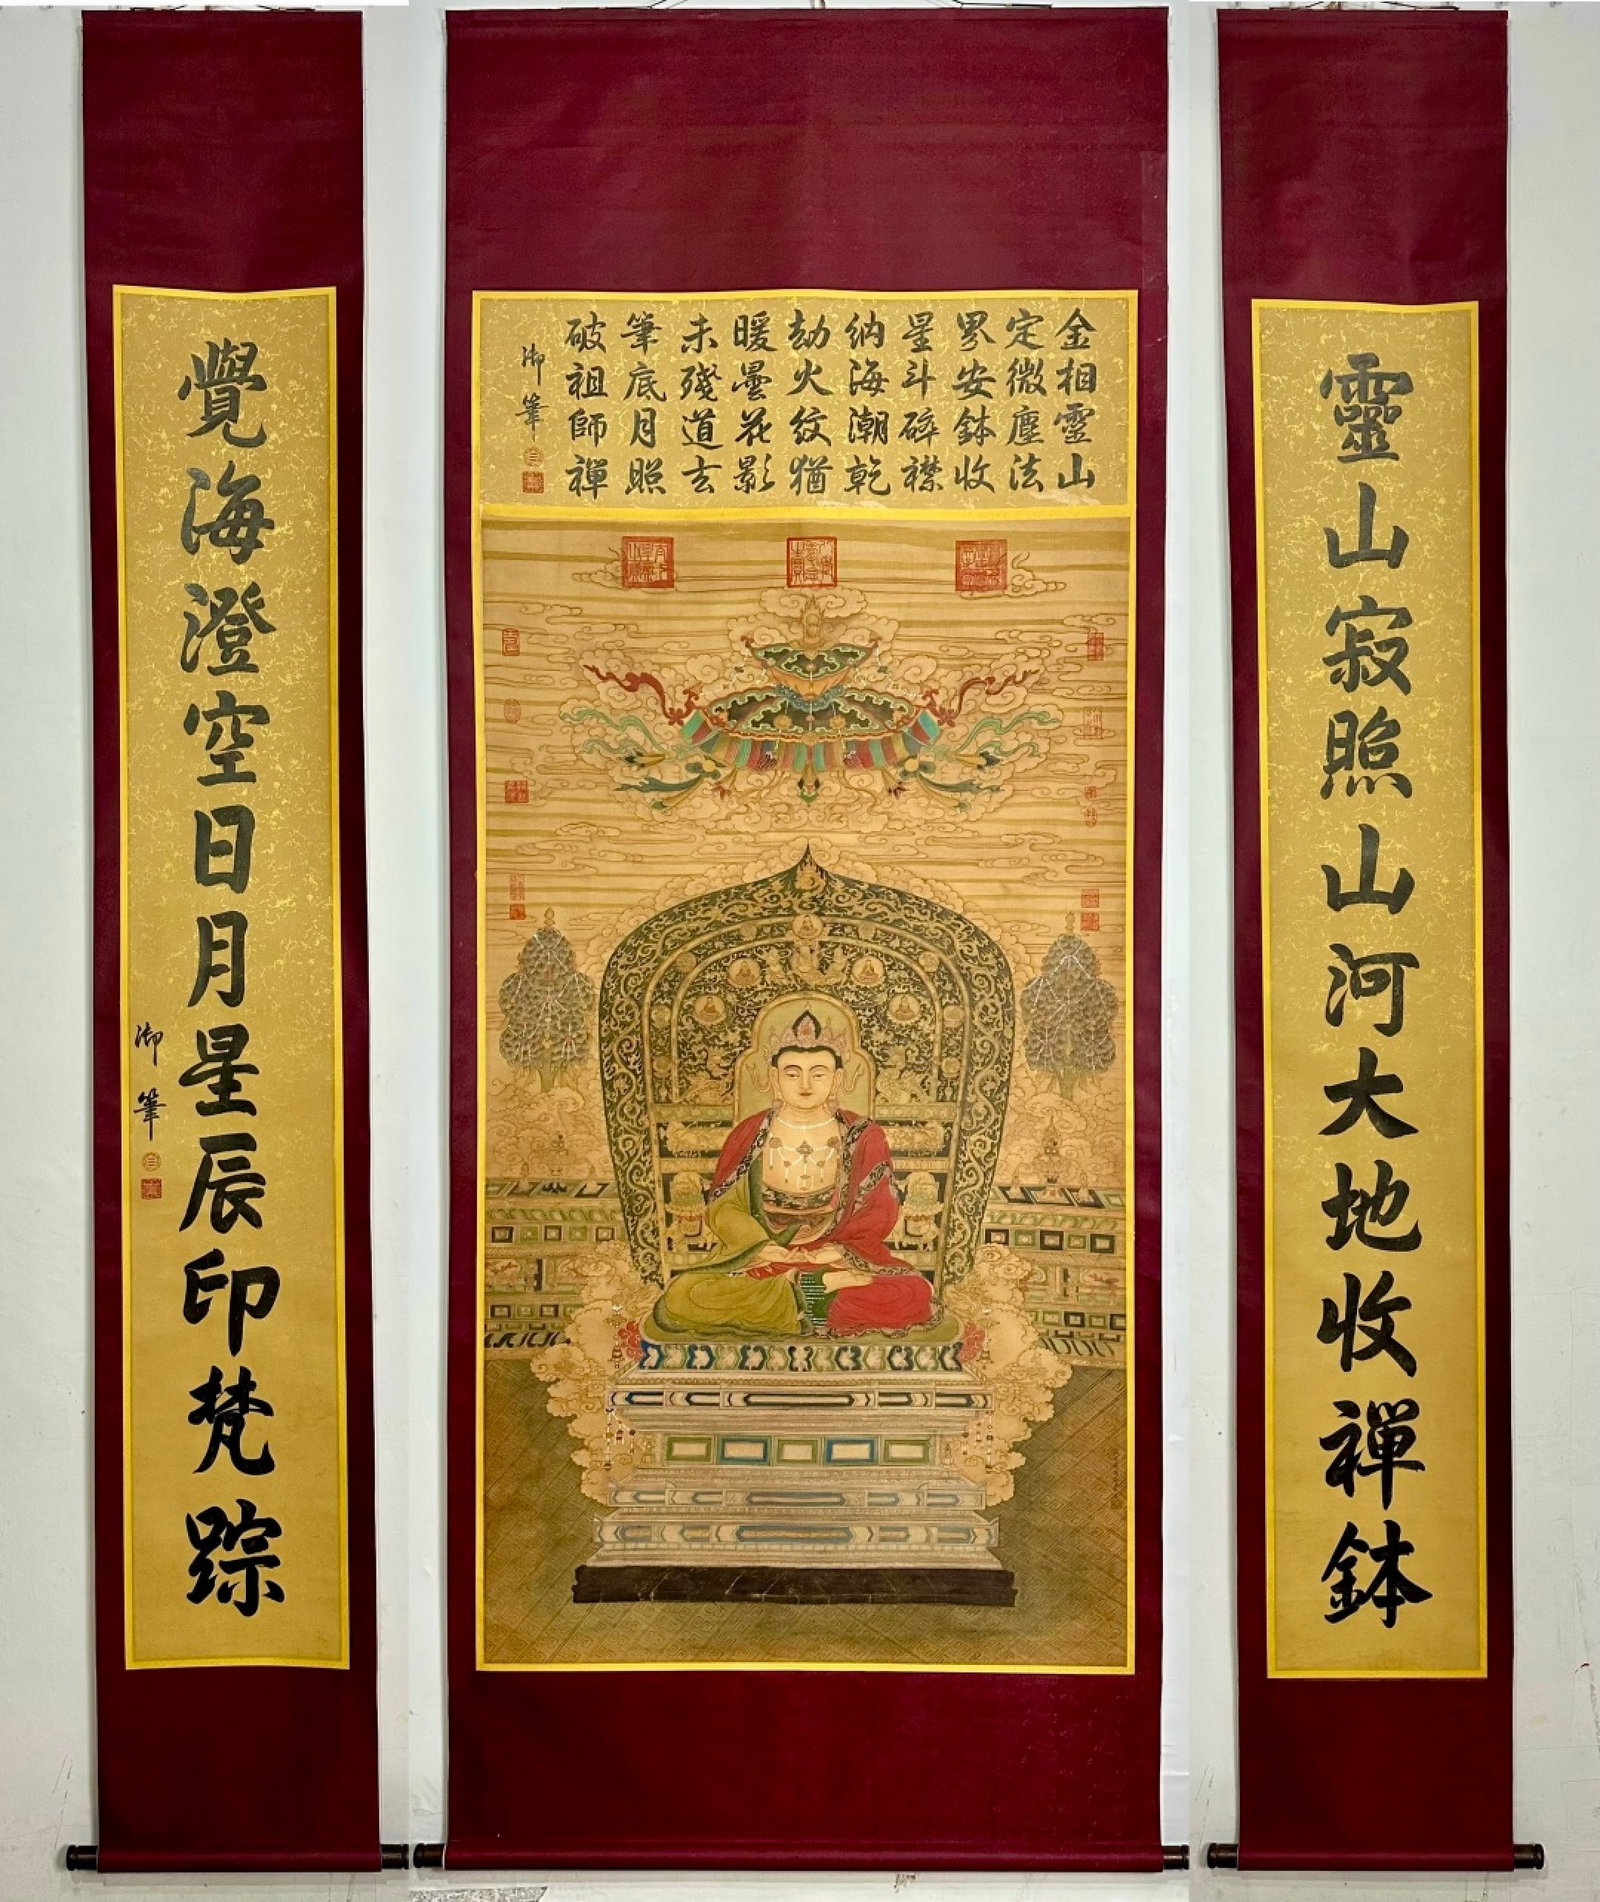 靈山寂照山河大地收禪鉢
金相靈山
定微塵法
界安鉢收
星斗碎襟
納海潮乾
劫火紋猶
暖曇花影
未殘道玄
筆底月照
破祖師禪
御筆
覺海澄空日月星辰印梵踪
御筆